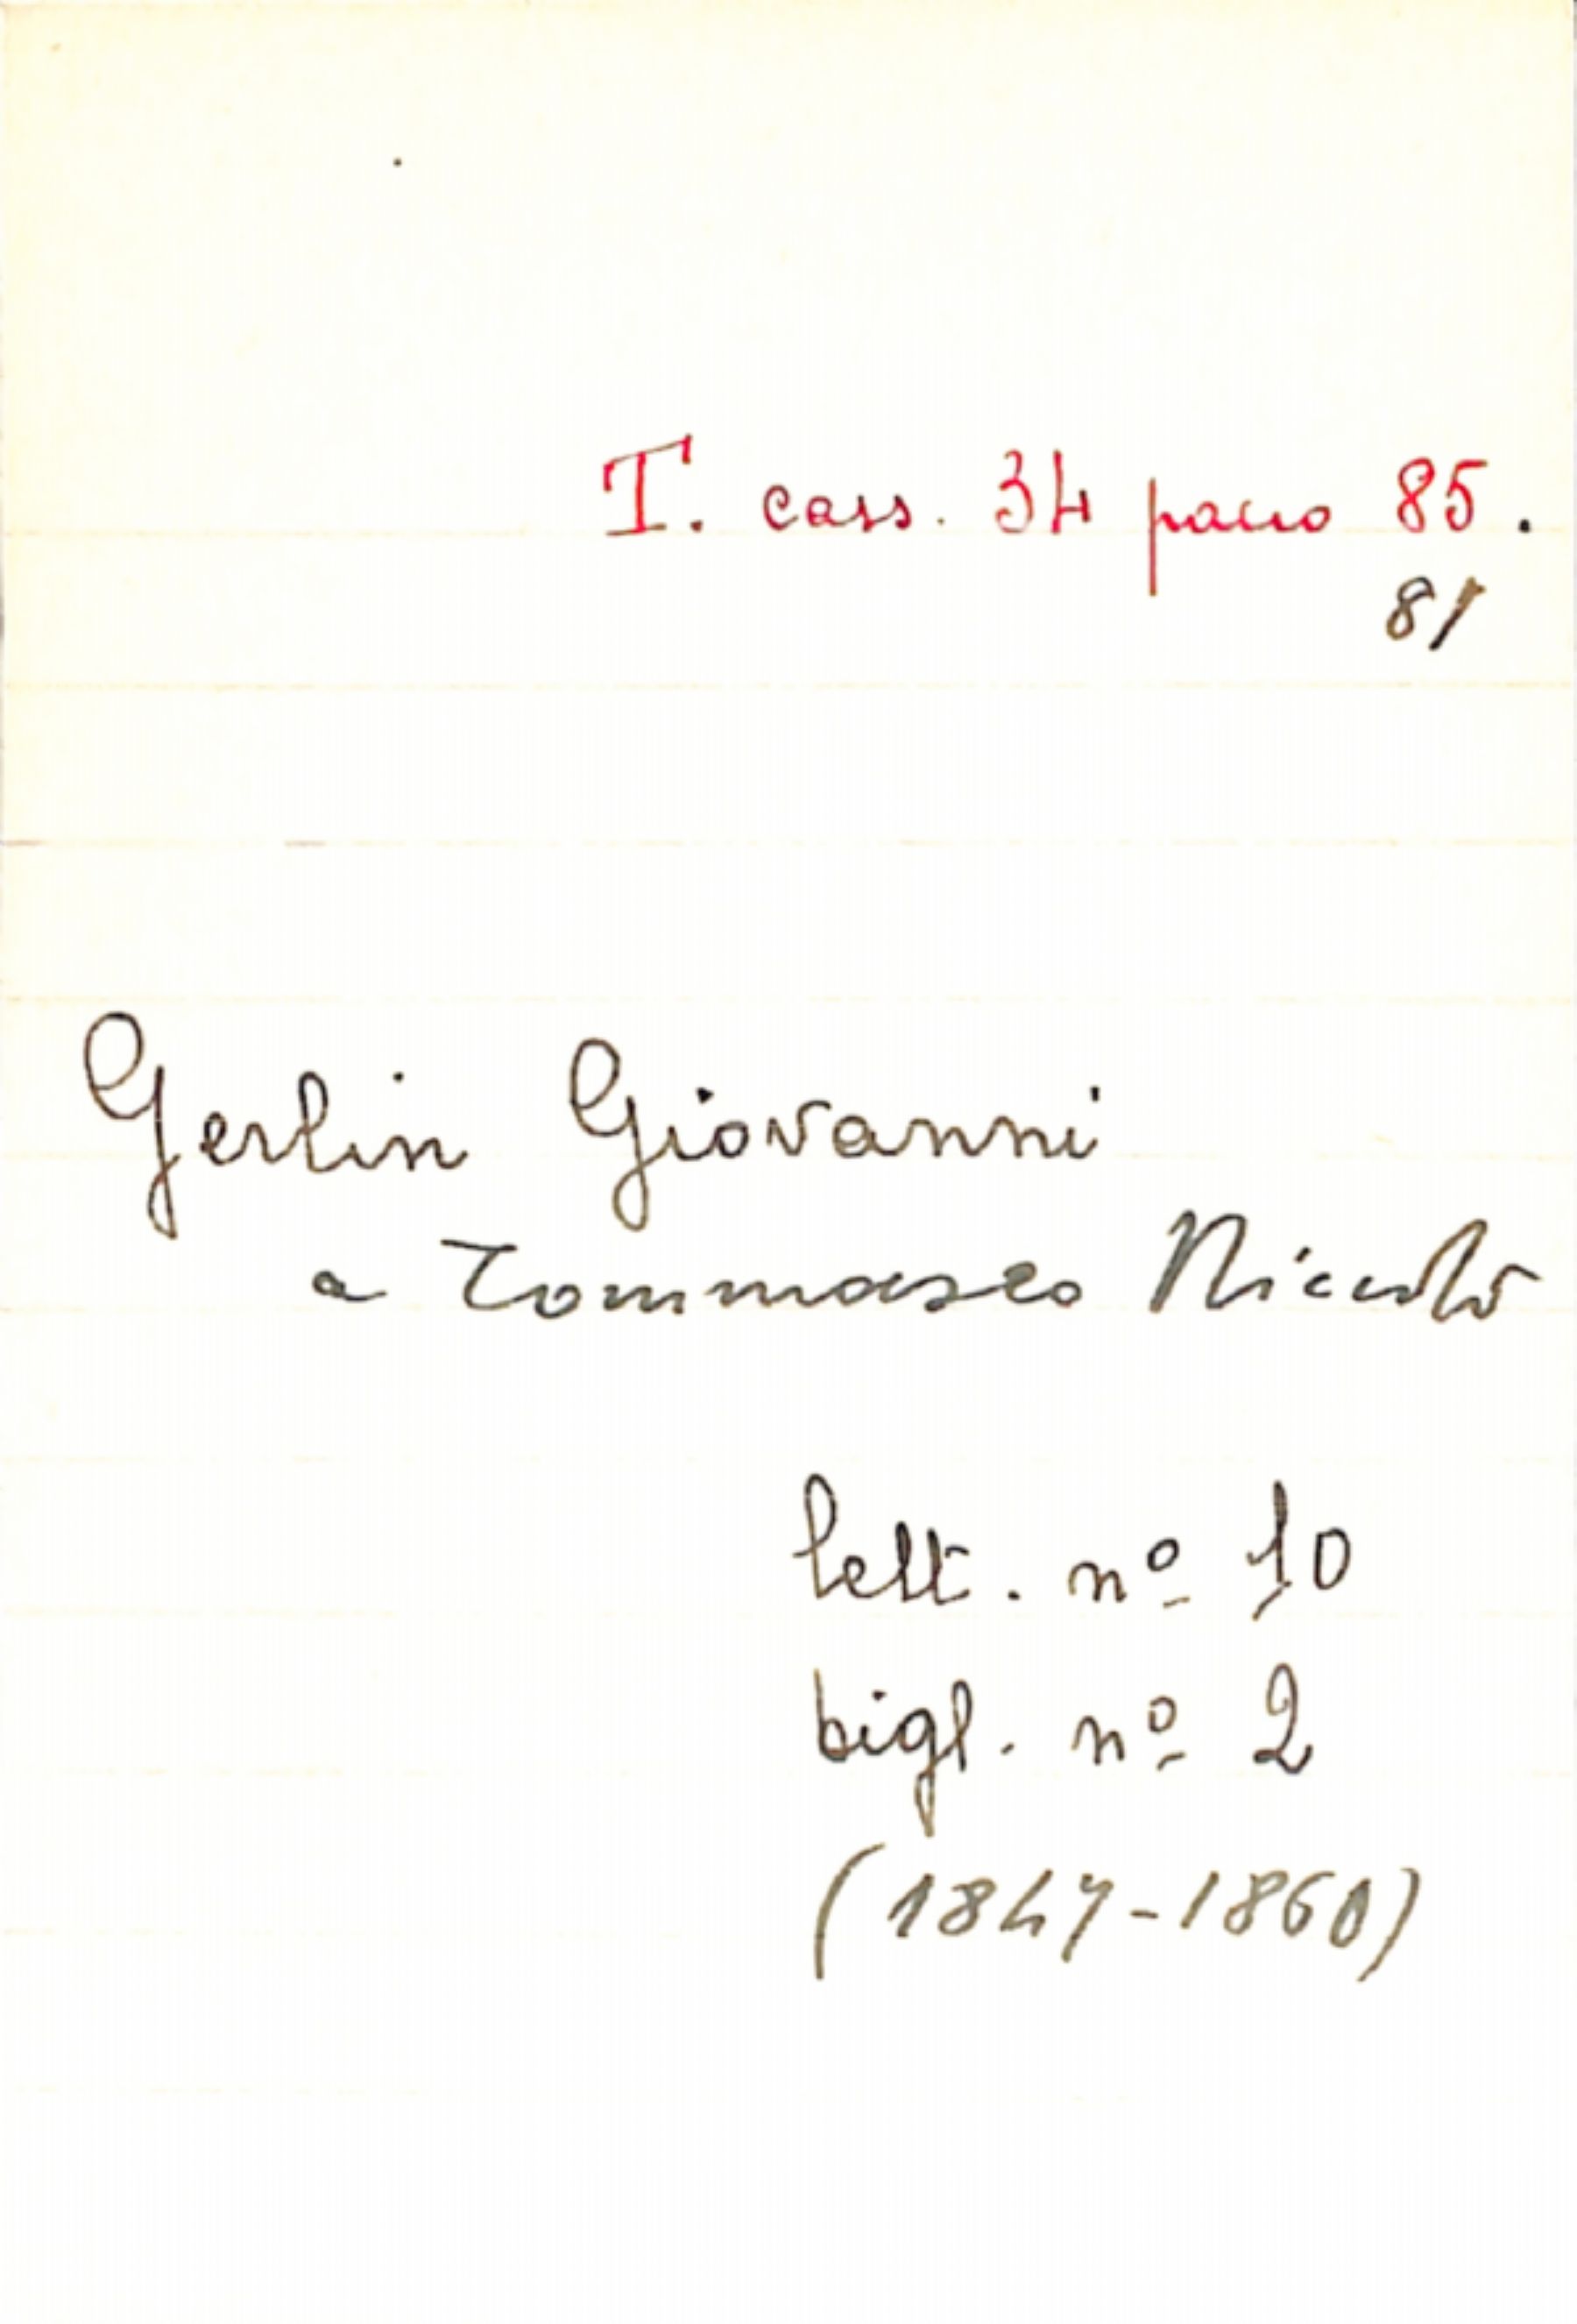 T. cass. 34 pacco 85.
81
Gerlin Giovanni
a Tommaseo Niccolò
lett. nº 10
bigl. nº 2
(1847-1860)